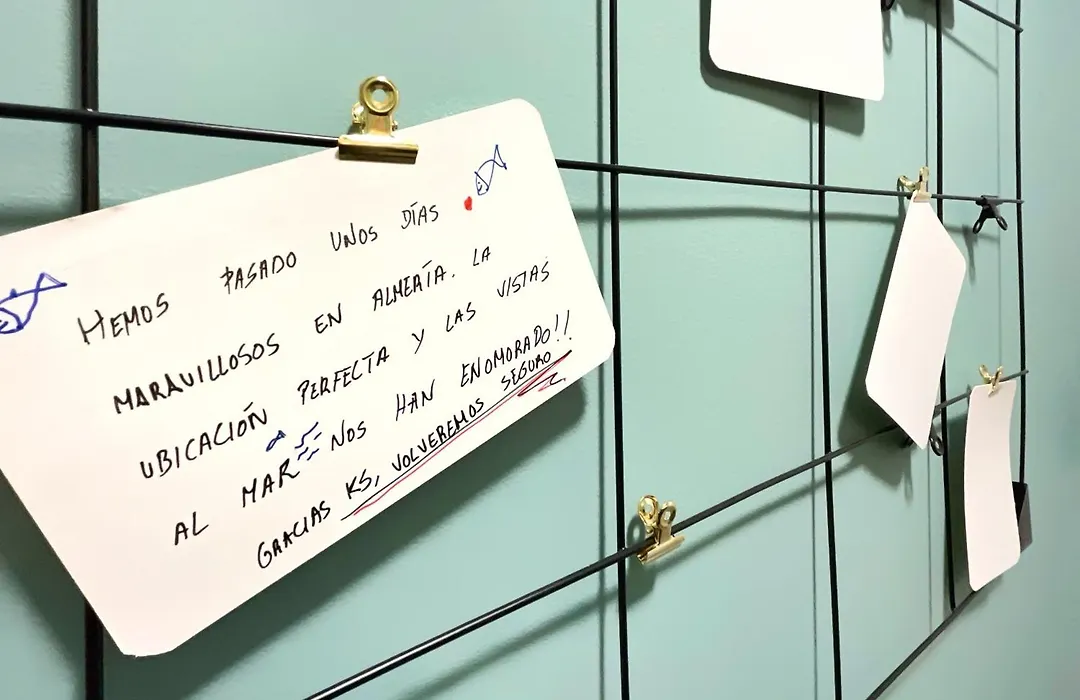 HEMOS PASADO UNOS DÍAS
MARAVILLOSOS EN ALMERÍA. LA
UBICACIÓN PERFECTA Y LAS VISTAS
AL MAR NOS HAN ENOMORADO!!
GRACIAS KS, VOLVEREMOS SEGURO